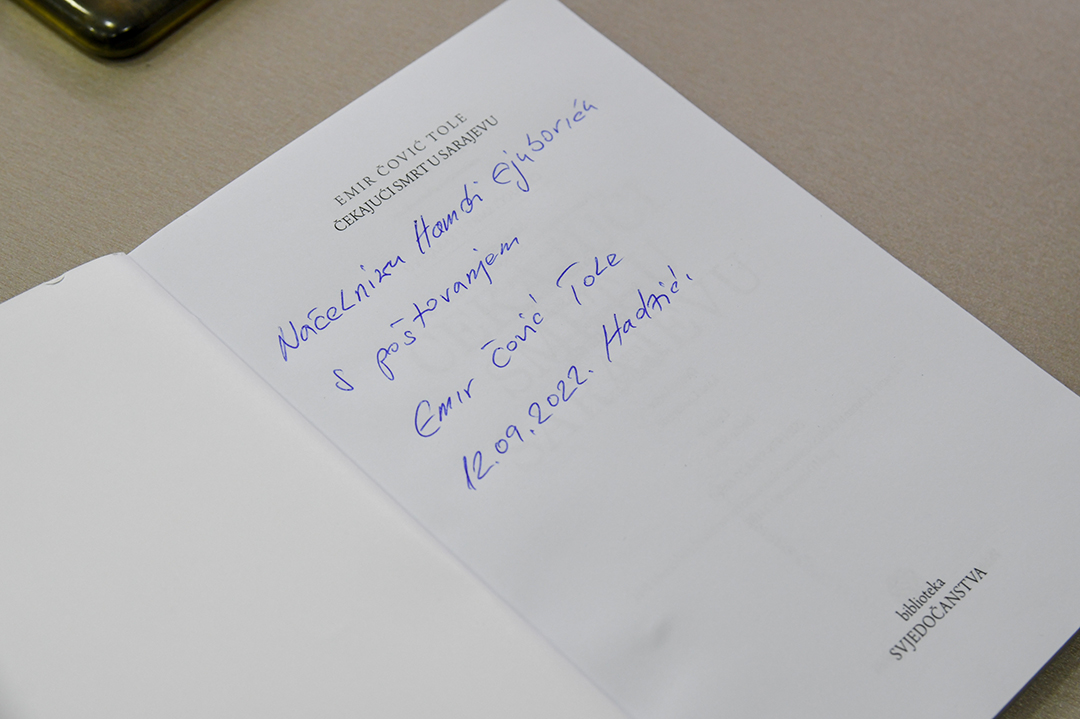 EMIR ČOVIĆ TOLE
ČEKAJUĆI SMRT U SARAJEVU
Načelniku Hamdi Ejuboviću
s poštovanjem
Emir Čović Tole
12.09.2022. Hadžići.
biblioteka
SVJEDOČANSTVA